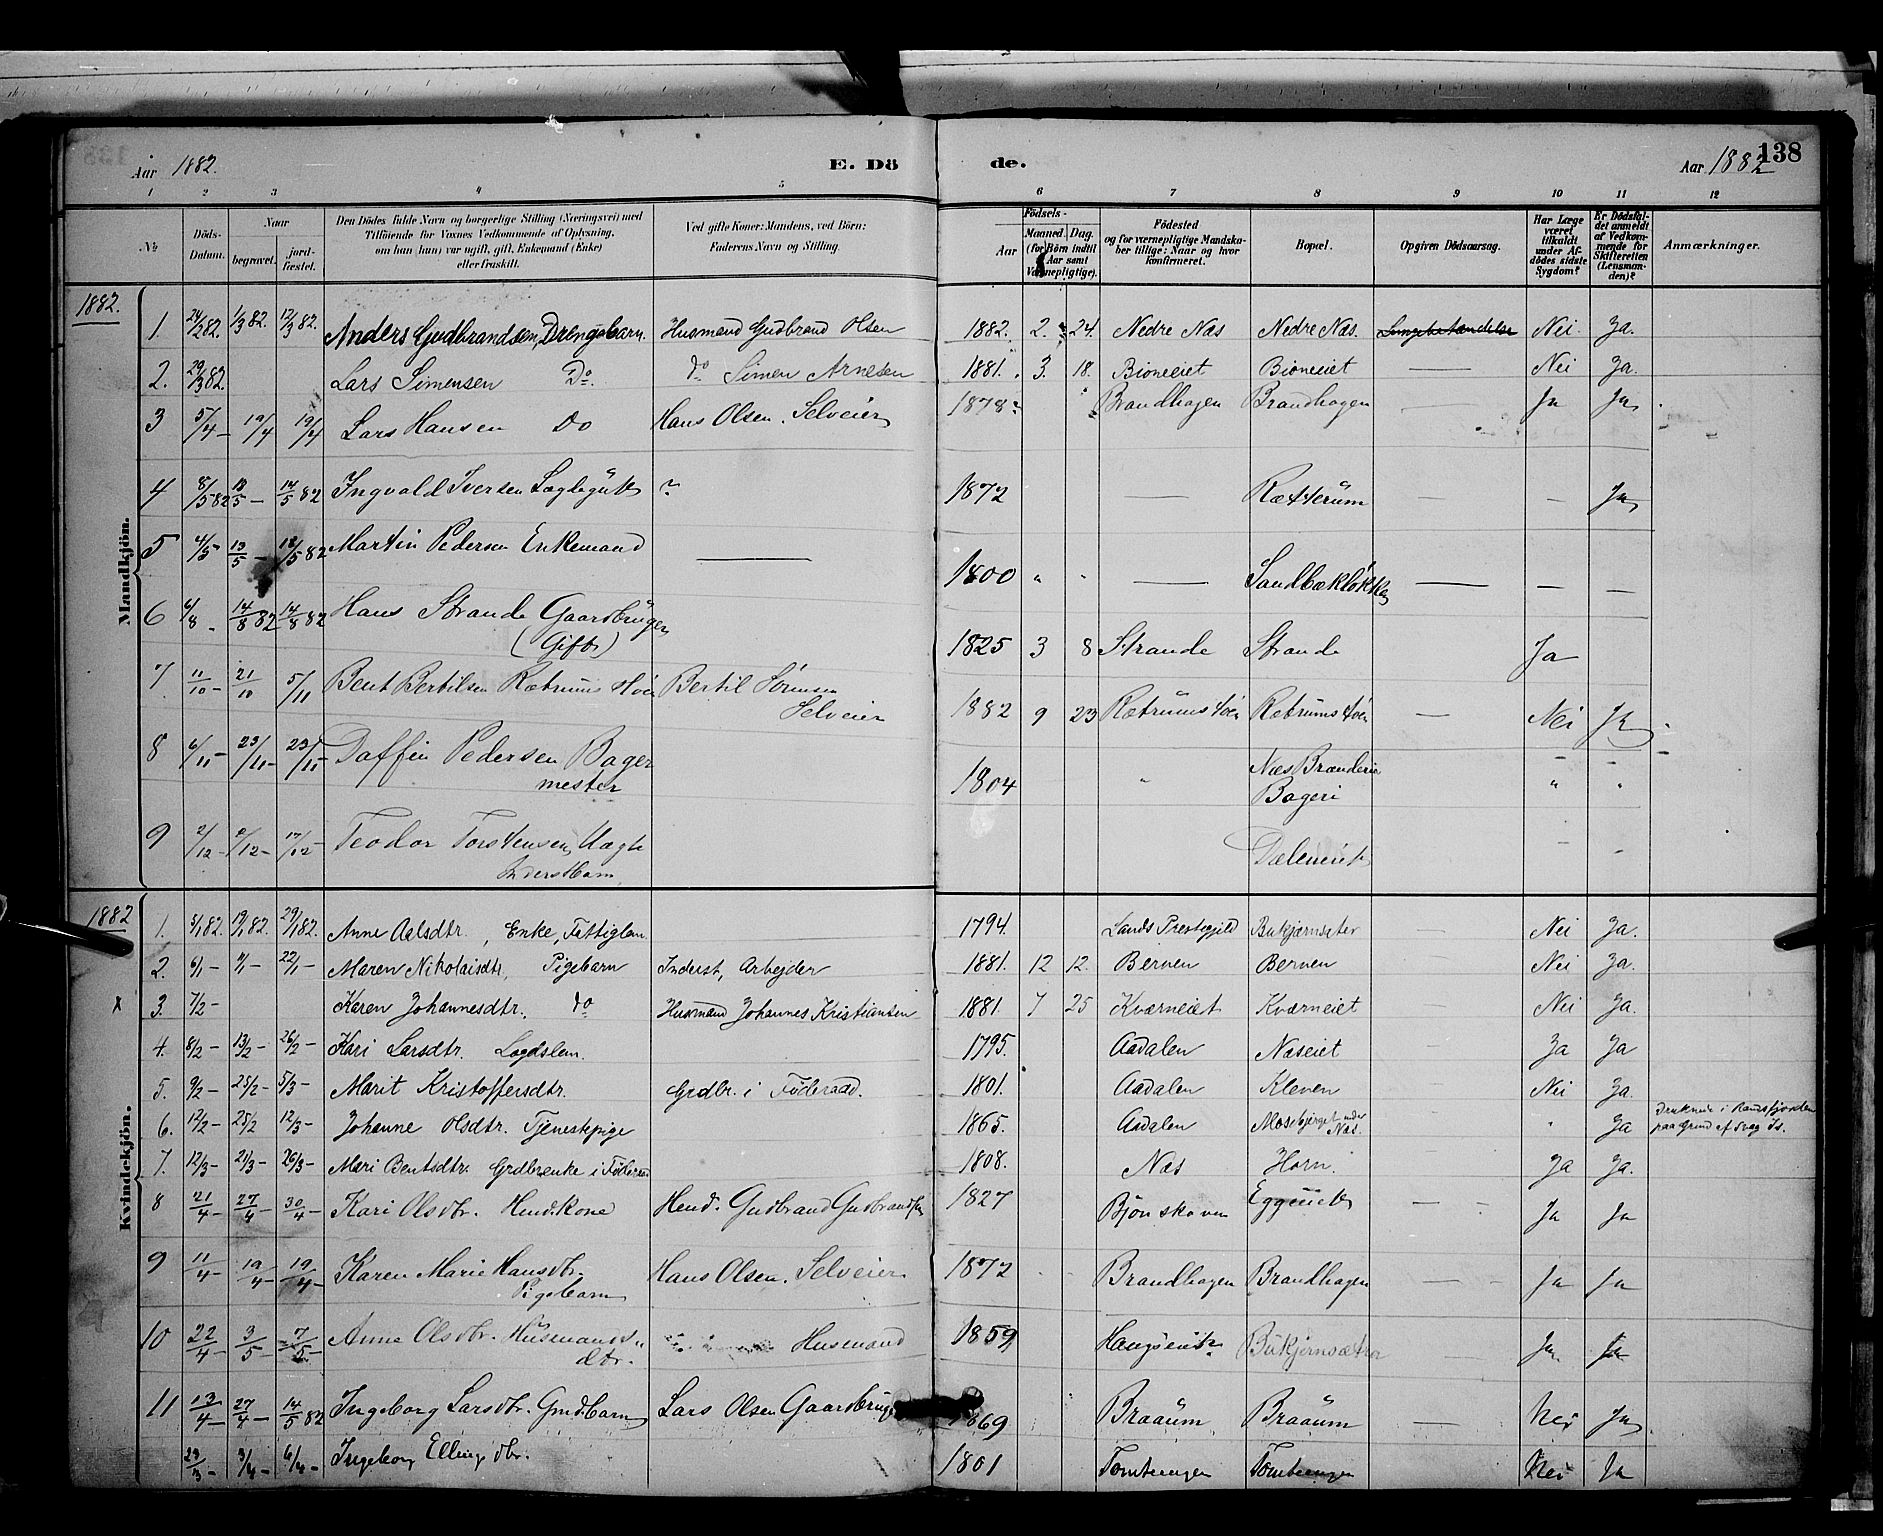 Aar 1882. E. Dö de. Aar 1882 138
1 2 3 4 5 6 7 8 9 10 11 12
№ Döds-Datum. Naar begravet. jord-fæstet. Den Dödes fulde Navn og borgerlige Stilling (Næringsvei) med Tilföiende for Voxnes Vedkommende af Oplysning, om han (hun) var ugift, gift, Enkemand (Enke) eller fraskilt. Ved gifte Koner: Mandens, ved Börn: Faderens Navn og Stilling. Aar Födsels- Maaned. Dag. (for Börn indtil 1 Aar samt Værnepligtige). Födested og for værnepligtige Mandskaber tillige: Naar og hvor konfirmeret. Bopæl. Opgiven Dödsaarsag. Har Læge været tilkaldt under Afdödes sidste Sygdom? Er Dödsfaldet anmeldt af Vedkommende for Skifteretten (Lensmanden)? Anmærkninger.
Mandkjön.
1882. 1. 24/2 82. 1/3 82. 12/3 82. Anders Gudbrandsen, Drengebarn. Husmand Gudbrand Olsen 1882. 2. 24. Nedre Næs Nedre Næs. Lungebetændelse Nei Ja.
2. 29/3 82. Lars Simensen Do. do Simen Arnesen 1881. 3. 18. Bioneeiet Bioneeiet — Nei Ja.
3 5/4 – 19/4 19/4 Lars Hansen Do Hans Olsen. Selveier 1878 Brandhagen Brandhagen — Ja Ja
4 8/5 82 14/5 82 Ingvald Iversen 1872 — Rætterum – – Ja
5 4/5 – 13/5 – 13/5 82 Martin Pedersen Enkemand — 1800 " " — — — —
6 6/8 – 14/8 82 14/8 82 Hans Strande Gaardbruger
(Gift) 1825 3 8 Strande Strande Ja
7 11/10 – 21/10 5/11 Bent Bertilsen Bertil
Selveier 1882 9 23 — Nei Ja
8 6/11 – 23/11 – 23/11 – Daffin Pedersen Bager
mester 1804 " Næs Brænderie
Bageri " "
9 2/12 – /12 – 17/12 – Teodor Torstensen
Dæleneiet – –
Kvindekjön.
1882 1. 5/1 82. 19/1 82. 29/1 82. Anne Aslsdtr., Enke, Fattiglem. 1794. Lands Prestegjeld Bukjærnsæter — Nei Ja.
2. 6/1 – 22/1 – Maren Nikolaisdtr. Pigebarn Inderst, Arbejder 1881. 12 12. Bernen Bernen Nei Ja.
x 3. 7/2 – Karen Johannesdtr. do Husmand Johannes Kristiansen 1881. 7 25 Kværneiet Kværneiet Nei Ja.
4. 8/2 – 13/2 – 26/2 – Kari Larsdtr. Lægdslem. 1795. Aadalen Næseiet Ja Ja
5. 9/2 – 25/2 – 5/3 – Marit Kristoffersdtr. Grdbr. i Föderaad. 1801. Aadalen Kleven Nei Ja.
6. 12/2 – 25/2 12/3 – Johanne Olsdtr. Tjenestepige 1865. Aadalen Mosebjerget under Næs. " Ja Druknede i Randsfjorden
paa Grund af svag Is.
7. 12/3 – 21/3 – 26/3 – Mari Bentsdtr. Grdbrenke i Föderaad 1808. Næs Horn. Ja Ja.
8 21/4 – 27/4 – 30/4 – Kari Olsdtr. Hmds.Kone Hmd. Gudbrand Gudbrands. 1827 Bjönskoven Eggeeiet — — Ja Ja
9 11/4 – 19/4 – 19/4 – Karen Marie Hansdtr.
Pigebarn Hans Olsen. Selveier 1872 Brandhagen Brandhagen — – Ja Ja
10 22/4 – 3/5 7/5 – Anne Olsdtr. Husmands
dtr. Husmand 1859 Haugseiet Bukjernsætra — Ja Ja
11 13/4 – 27/4 – 14/5 82 Ingeborg Larsdtr. Lars Olsen Gaardbruger 1869 Braaum Braaum — Nei Ja
23/3 – 3/4 – 6/4 – Ingeborg Ellingsdtr. 1801 Tomteengen Tomteengen Nei Ja